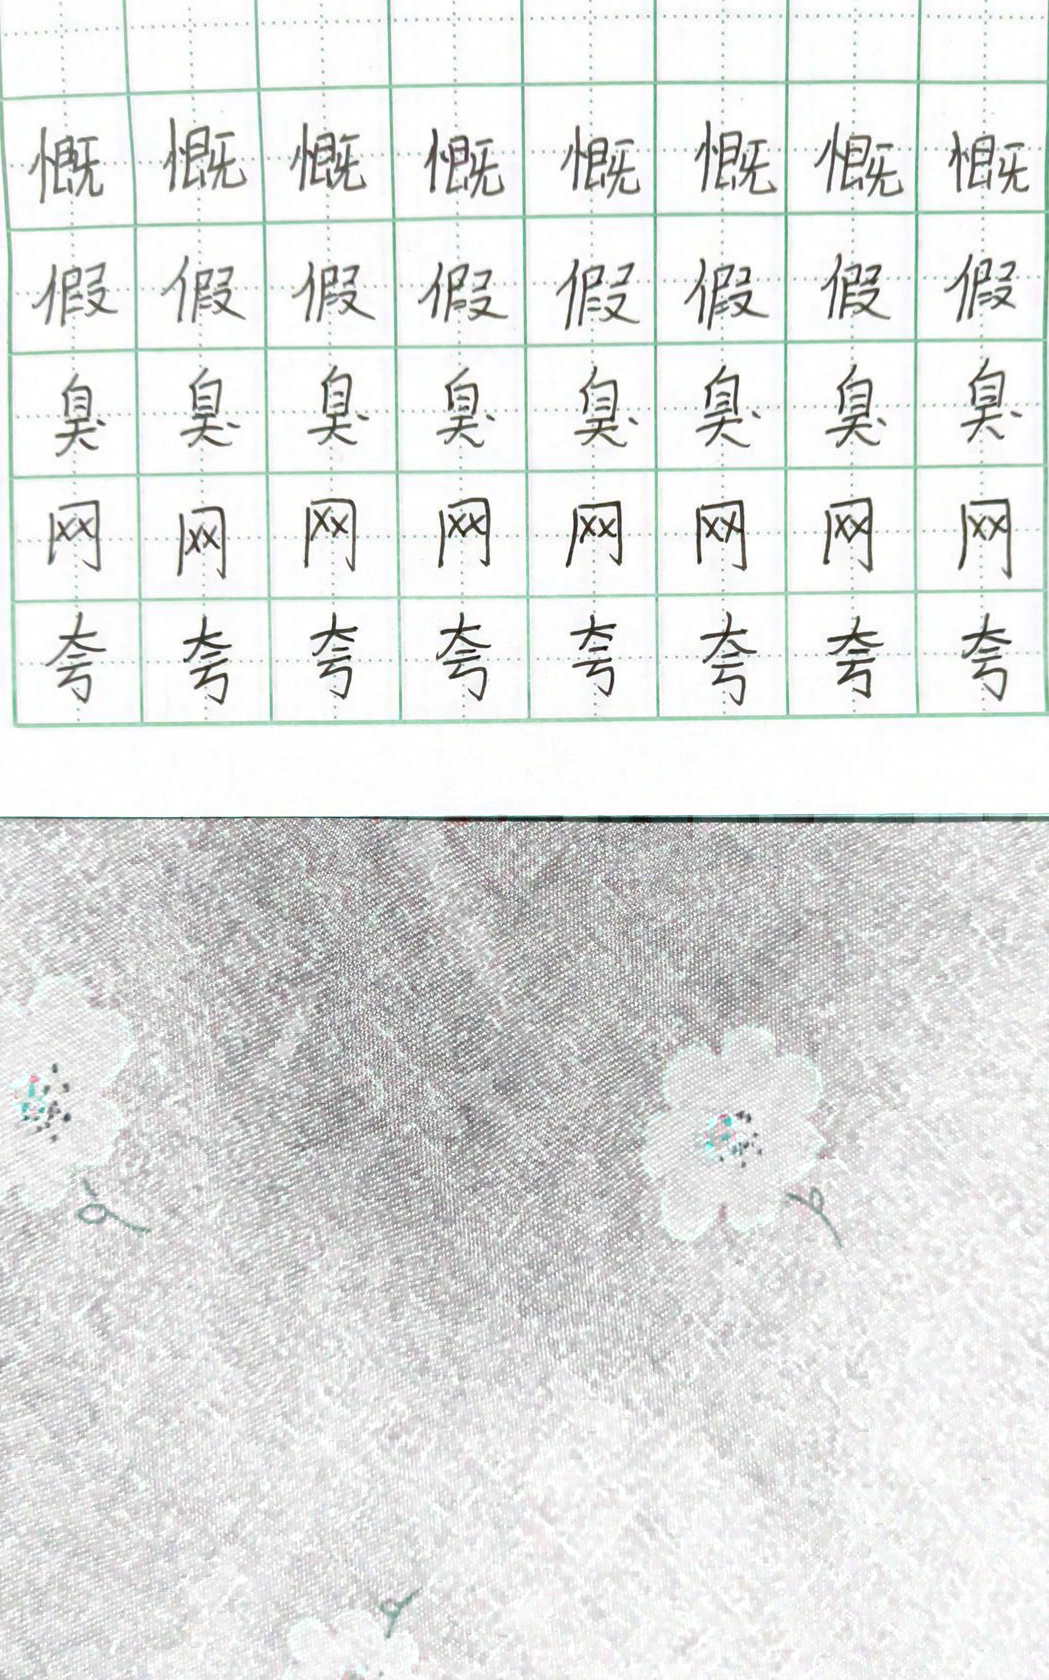 慨慨慨慨慨慨慨慨
假假假假假假假假
臭臭臭臭臭臭臭臭
网网网网网网网网
夸夸夸夸夸夸夸夸